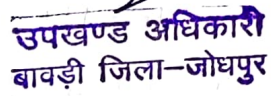 उपखण्ड अधिकारी
बावड़ी जिला-जोधपुर